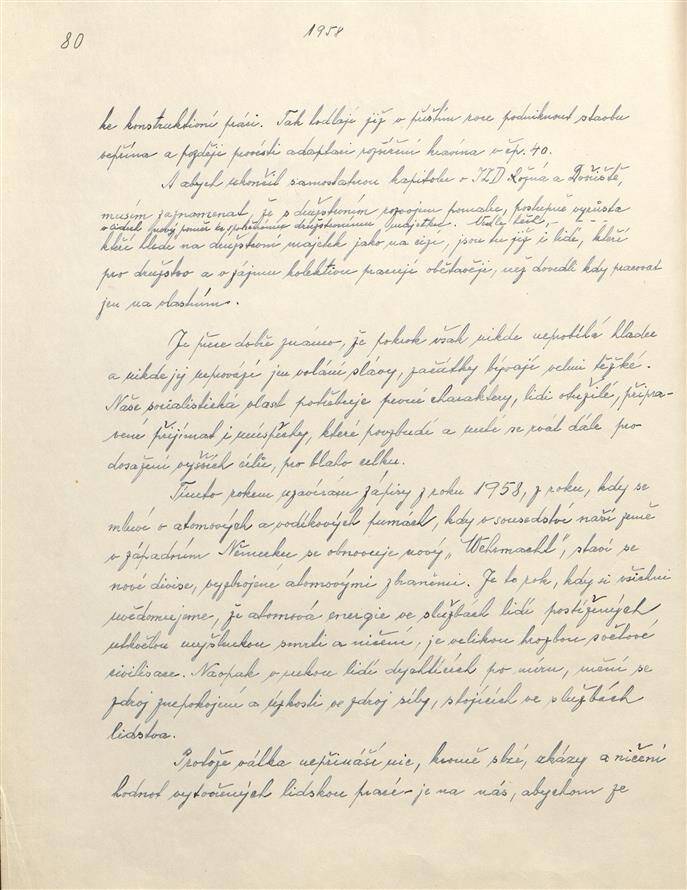 80
1958
ke konstrukční práci. Tak hodlají již v příštím roce podniknout stavbu
vepřína a později provésti adaptaci rozšíření kravína v čp. 40.
A abych ukončil samostatnou kapitolu o JZD Rožná a Dvořiště,
musím zaznamenat, že s družstevním rozvojem pomalu, postupně vyrůstá
v lidech nový poměr ke společnému družstevnímu majetku. Vedle těch,
kteří hledí na družstevní majetek jako na cizí, jsou tu již i lidé, kteří
pro družstvo a v zájmu kolektivu pracují obětavěji, než dovedli kdy pracovat
jen na vlastním.
Je přece dobře známo, že pokrok však nikde neprobíhá hladce
a nikde jej neprovází jen volání slávy, začátky bývají velmi těžké.
Naše socialistická vlast potřebuje pevné charaktery, lidi otužilé, připra-
vené přijímat i neúspěchy, které povzbudí a nutí se rvát dále pro
dosažení vyšších cílů, pro blaho celku.
Tímto rokem uzavírám zápisy z roku 1958, z roku, kdy se
mluví o atomových a vodíkových pumách, kdy v sousedství naší země
v západním Německu se obnovuje nový „Wehrmacht", staví se
nové divise, vyzbrojené atomovými zbraněmi. Je to rok, kdy si všichni
uvědomujeme, že atomová energie ve službách lidí postižených
utkvělou myšlenkou smrti a ničení, je velikou hrozbou světové
civilisace. Naopak v rukou lidí dychtících po míru, mění se
zdroj znepokojení a úzkosti ve zdroj síly, stojících ve službách
lidstva.
Protože válka nepřináší nic, kromě slzí, zkázy a ničení
hodnot vytvořených lidskou prací – je na nás, abychom ze